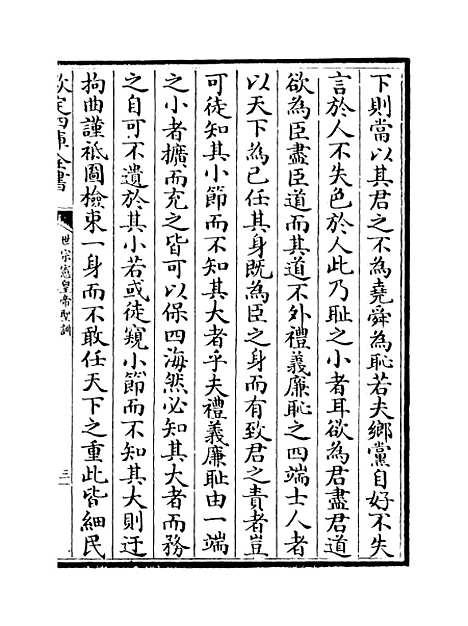 下則當以其君之不為堯舜為恥若夫鄉黨自好不失
言於人不失色於人此乃耻之小者耳欲為君盡君道
欲為臣盡臣道而其道不外禮義廉恥之四端士人者
以天下為己任其身既為臣之身而有致君之責者豈
可徒知其小節而不知其大者乎夫禮義廉耻由一端
之小者擴而充之皆可以保四海然必知其大者而務
之自可不遺於其小若或徒窺小節而不知其大則迂
拘曲謹祗圖檢束一身而不敢任天下之重此皆細民
欽定四庫全書
世宗憲皇帝聖訓
三